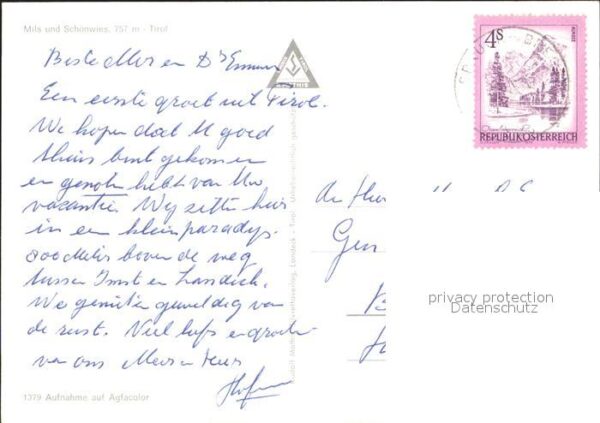 Mils und Schönwies, 757 m - Tirol
Beste en Dr
Een eerste groet uit Tirol.
We hopen dat U goed
thuis bent gekomen
en genoten hebt van Uw
vacantie. Wij zitten hier
in een klein paradijs.
800 Meter boven de weg
tussen Imst en Landeck.
We genieten geweldig van
de rust. Veel liefs en groeten
van ons
1379 Aufnahme auf Agfacolor
4S
REPUBLIK ÖSTERREICH
privacy protection
Datenschutz